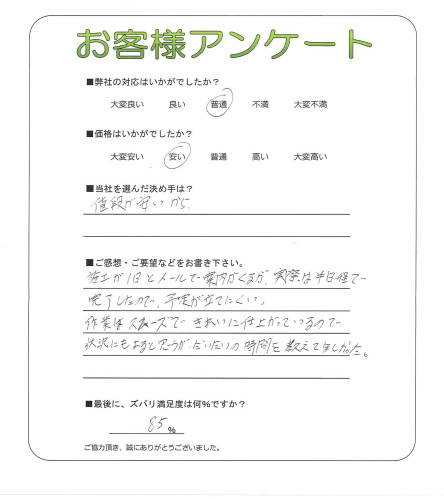 お客様アンケート
■弊社の対応はいかがでしたか？
大変良い 良い 普通 不満 大変不満
■価格はいかがでしたか？
大変安い 安い 普通 高い 大変高い
■当社を選んだ決め手は？
値段が安いから
■ご感想・ご要望などをお書き下さい。
施工が1日とメールで案内がくるが、実際は半日程で
完了したので、予定が立てにくい。
作業はスムーズできれいに仕上がっているので
状況にもよると思うがだいたいの時間を教えてほしかった。
■最後に、ズバリ満足度は何％ですか？
85％
ご協力頂き、誠にありがとうございました。